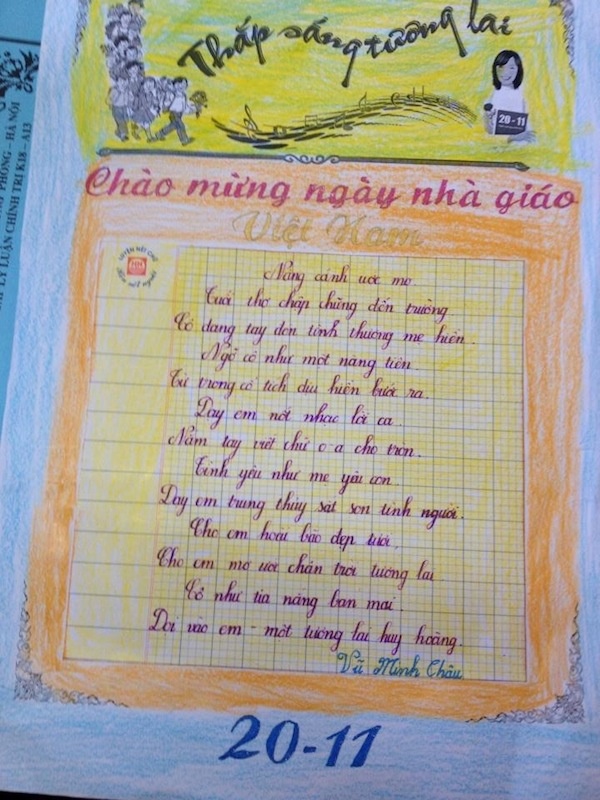 Thắp sáng tương lai
20 - 11
PHONG – HÀ NỘI
LÝ LUẬN CHÍNH TRỊ K18 – A13
Chào mừng ngày nhà giáo
Việt Nam
LUYỆN NÉT CHỮ
Rèn nết người
Nâng cánh ước mơ.
Tuổi thơ chập chững đến trường
Cô dang tay đón tình thương mẹ hiền.
Ngỡ cô như một nàng tiên
Từ trong cổ tích dịu hiền bước ra.
Dạy em nốt nhạc lời ca.
Nắm tay viết chữ o-a cho tròn.
Tình yêu như mẹ yêu con.
Dạy em trung thủy sắt son tình người.
Cho em hoài bão đẹp tươi,
Cho em mơ ước chân trời tương lai
Cô như tia nắng ban mai.
Dọi vào em - một tương lai huy hoàng.
Vũ Minh Châu
20-11